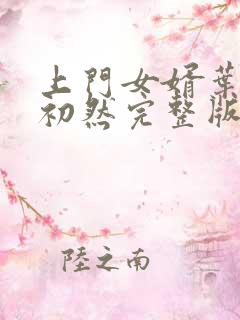 上門女婿葉
初然完整版
陸之南